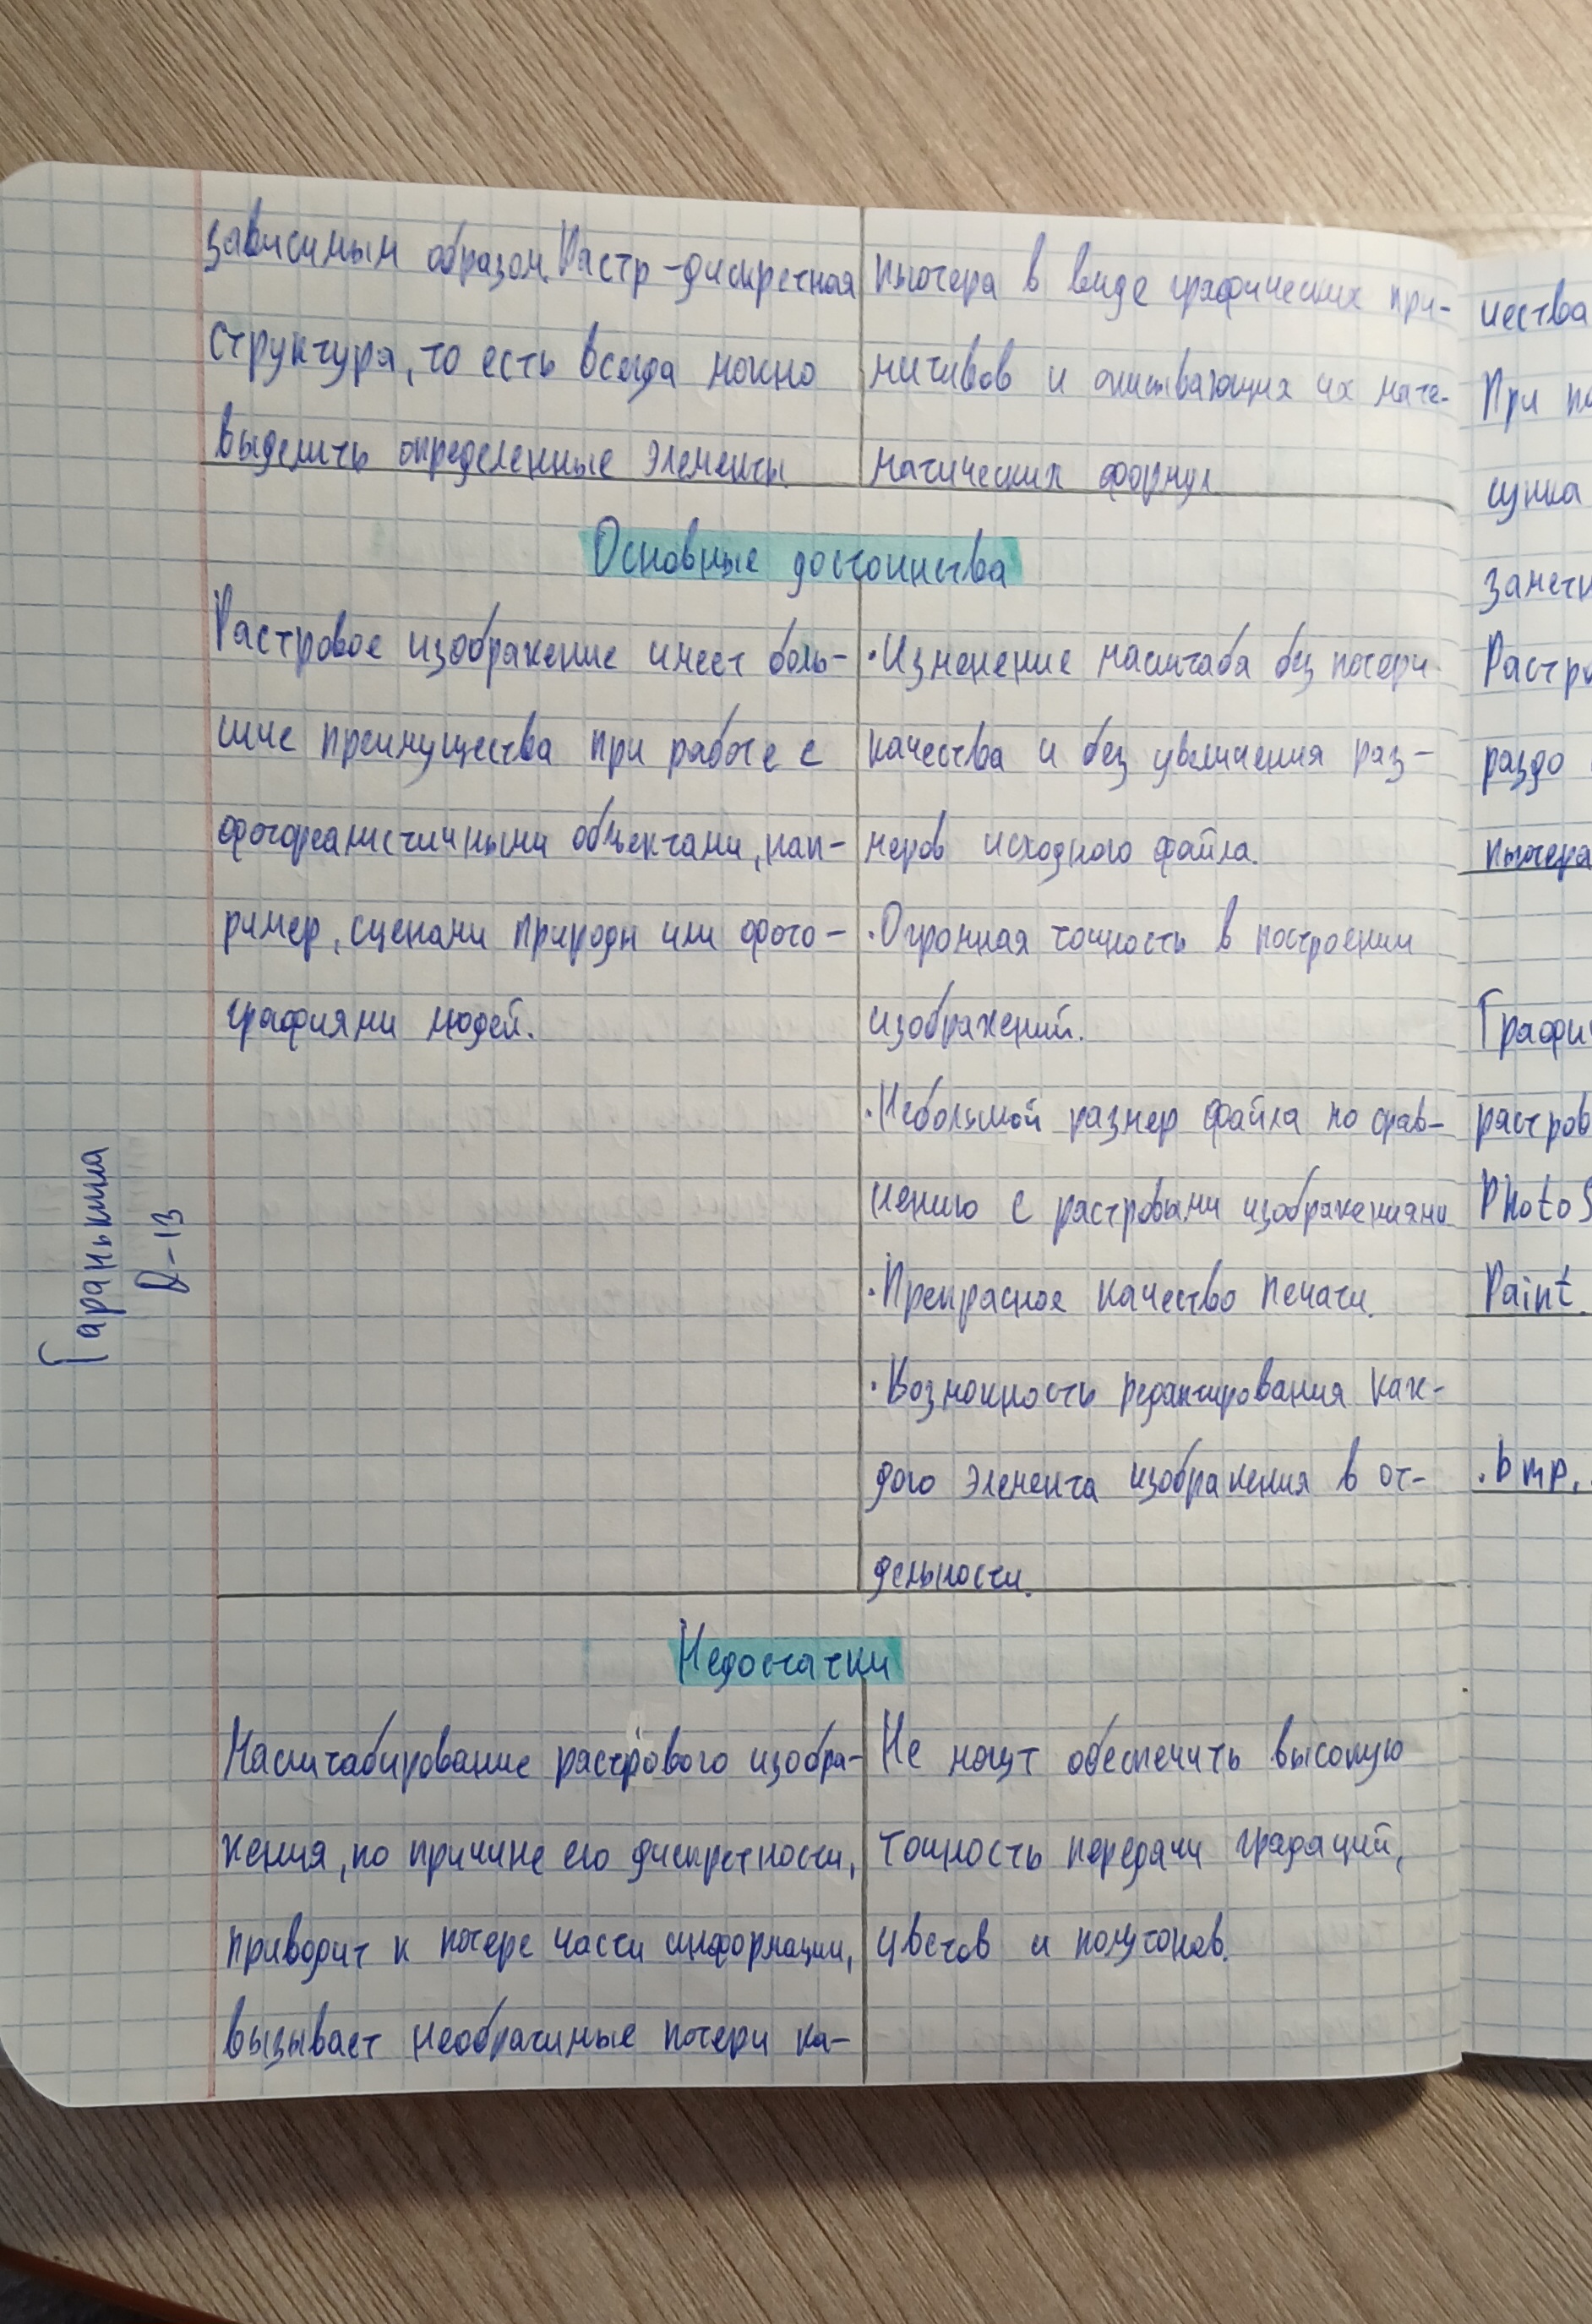 зависимым образом. Растр - дискретная
структура, то есть всегда можно
выделить определенные элементы.
пьютера в виде графических при-
митивов и описывающих их мате-
матических формул
Основные достоинства
Растровое изображение имеет боль-
шие преимущества при работе с
фотореалистичными объектами, нап-
ример, сценами природы или фото-
графиями людей.
·Изменение масштаба без потери
качества и без увеличения раз-
меров исходного файла.
·Огромная точность в построении
изображений.
·Небольшой размер файла по срав-
нению с растровыми изображениями
·Прекрасное качество печати.
·Возможность редактирования каж-
дого элемента изображения в от-
дельности.
Недостатки
Масштабирование растрового изобра-
жения, по причине его дискретности,
приводит к потере части информации,
вызывает необратимые потери ка-
Не могут обеспечить высокую
точность передачи градаций,
цветов и полутонов.
Гаранькина
D-13
чества
При
сунка
Растр
раздо
пьютера
Графи
растров
Photo
Paint.
.bmp,